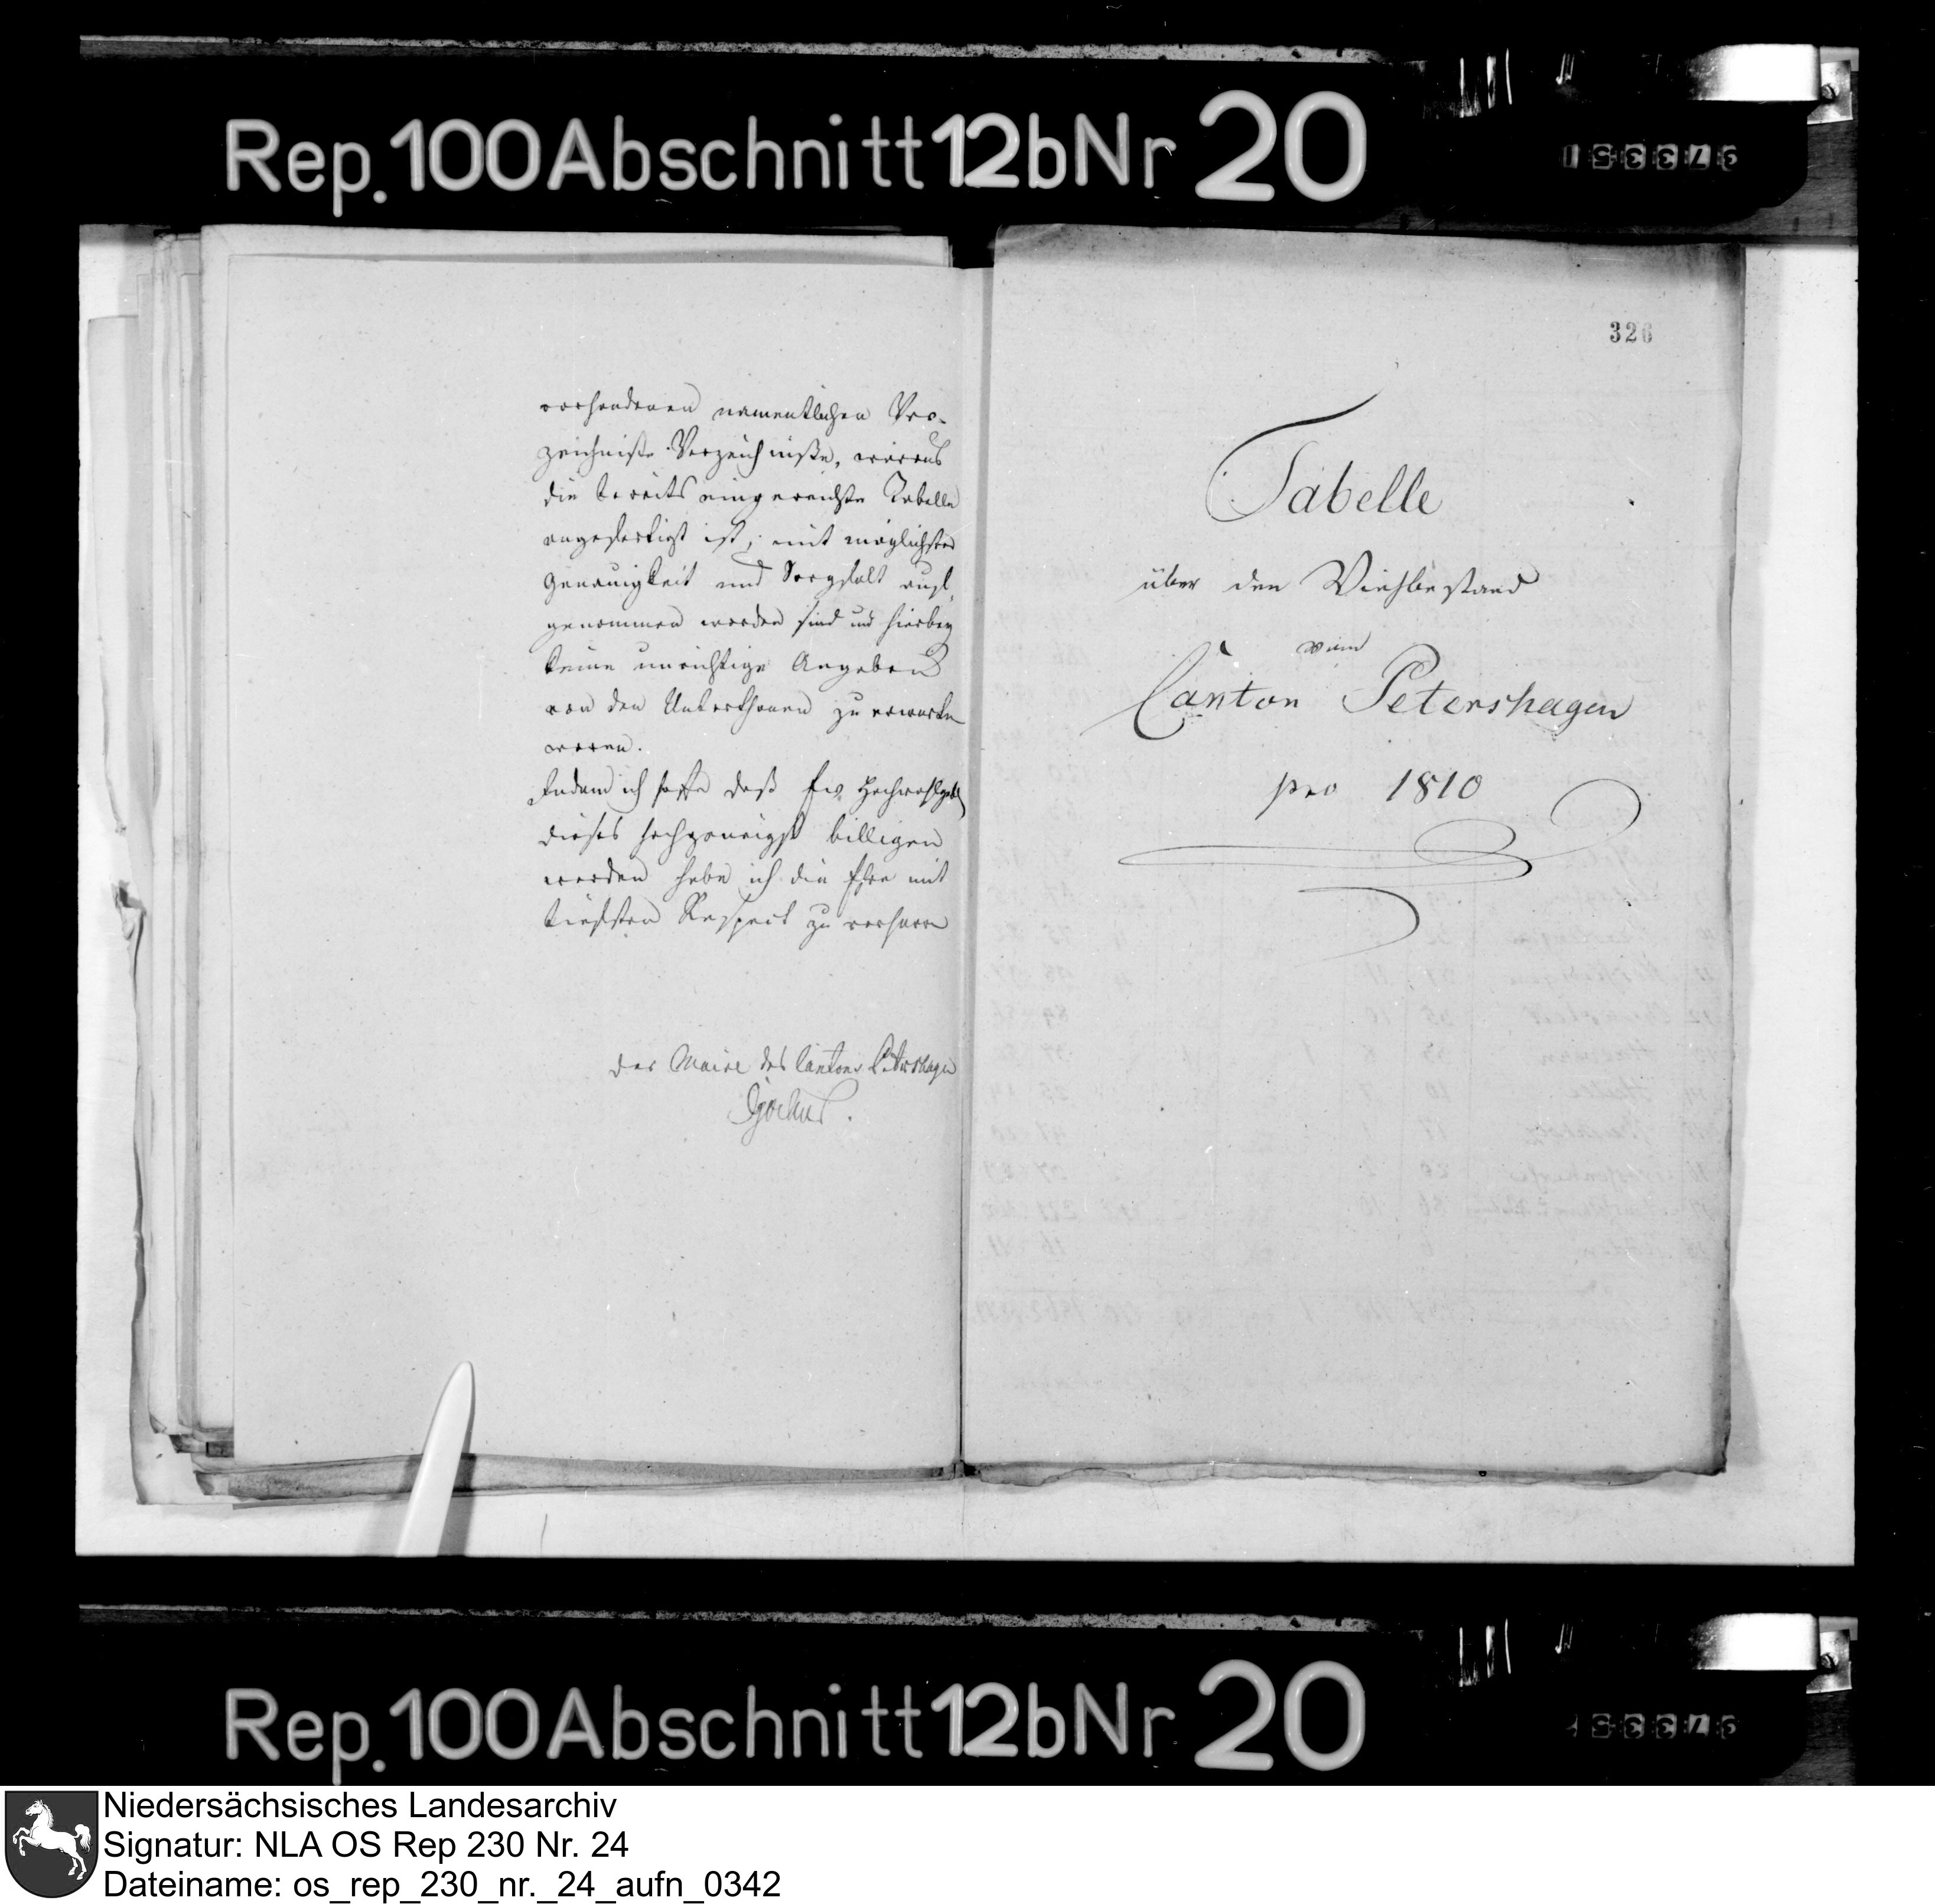 Rep. 100 Abschnitt 12b Nr 20
vorhandenen namentlichen Ver-
zeichniße Verzeichniße, woraus
die bereits eingereichte Tabelle
angefertigt ist, mit möglichster
Genauigkeit und Sorgfalt auf-
genommen worden sind und hierbey
keine unrichtige Angaben
von den Unterthanen zu erwarten
waren.
Indem ich hoffe daß Ew. Hochwohlgeb
dieses hochgeneigst billigen
werden habe ich die Ehre mit
tiefsten Respect zu verharren
Der Maire des Cantons Petershagen
326
Tabelle
über den Viehbestand
vom
Canton Petershagen
pro 1810
Rep. 100 Abschnitt 12b Nr 20
Niedersächsisches Landesarchiv
Signatur: NLA OS Rep 230 Nr. 24
Dateiname: os_rep_230_nr._24_aufn_0342